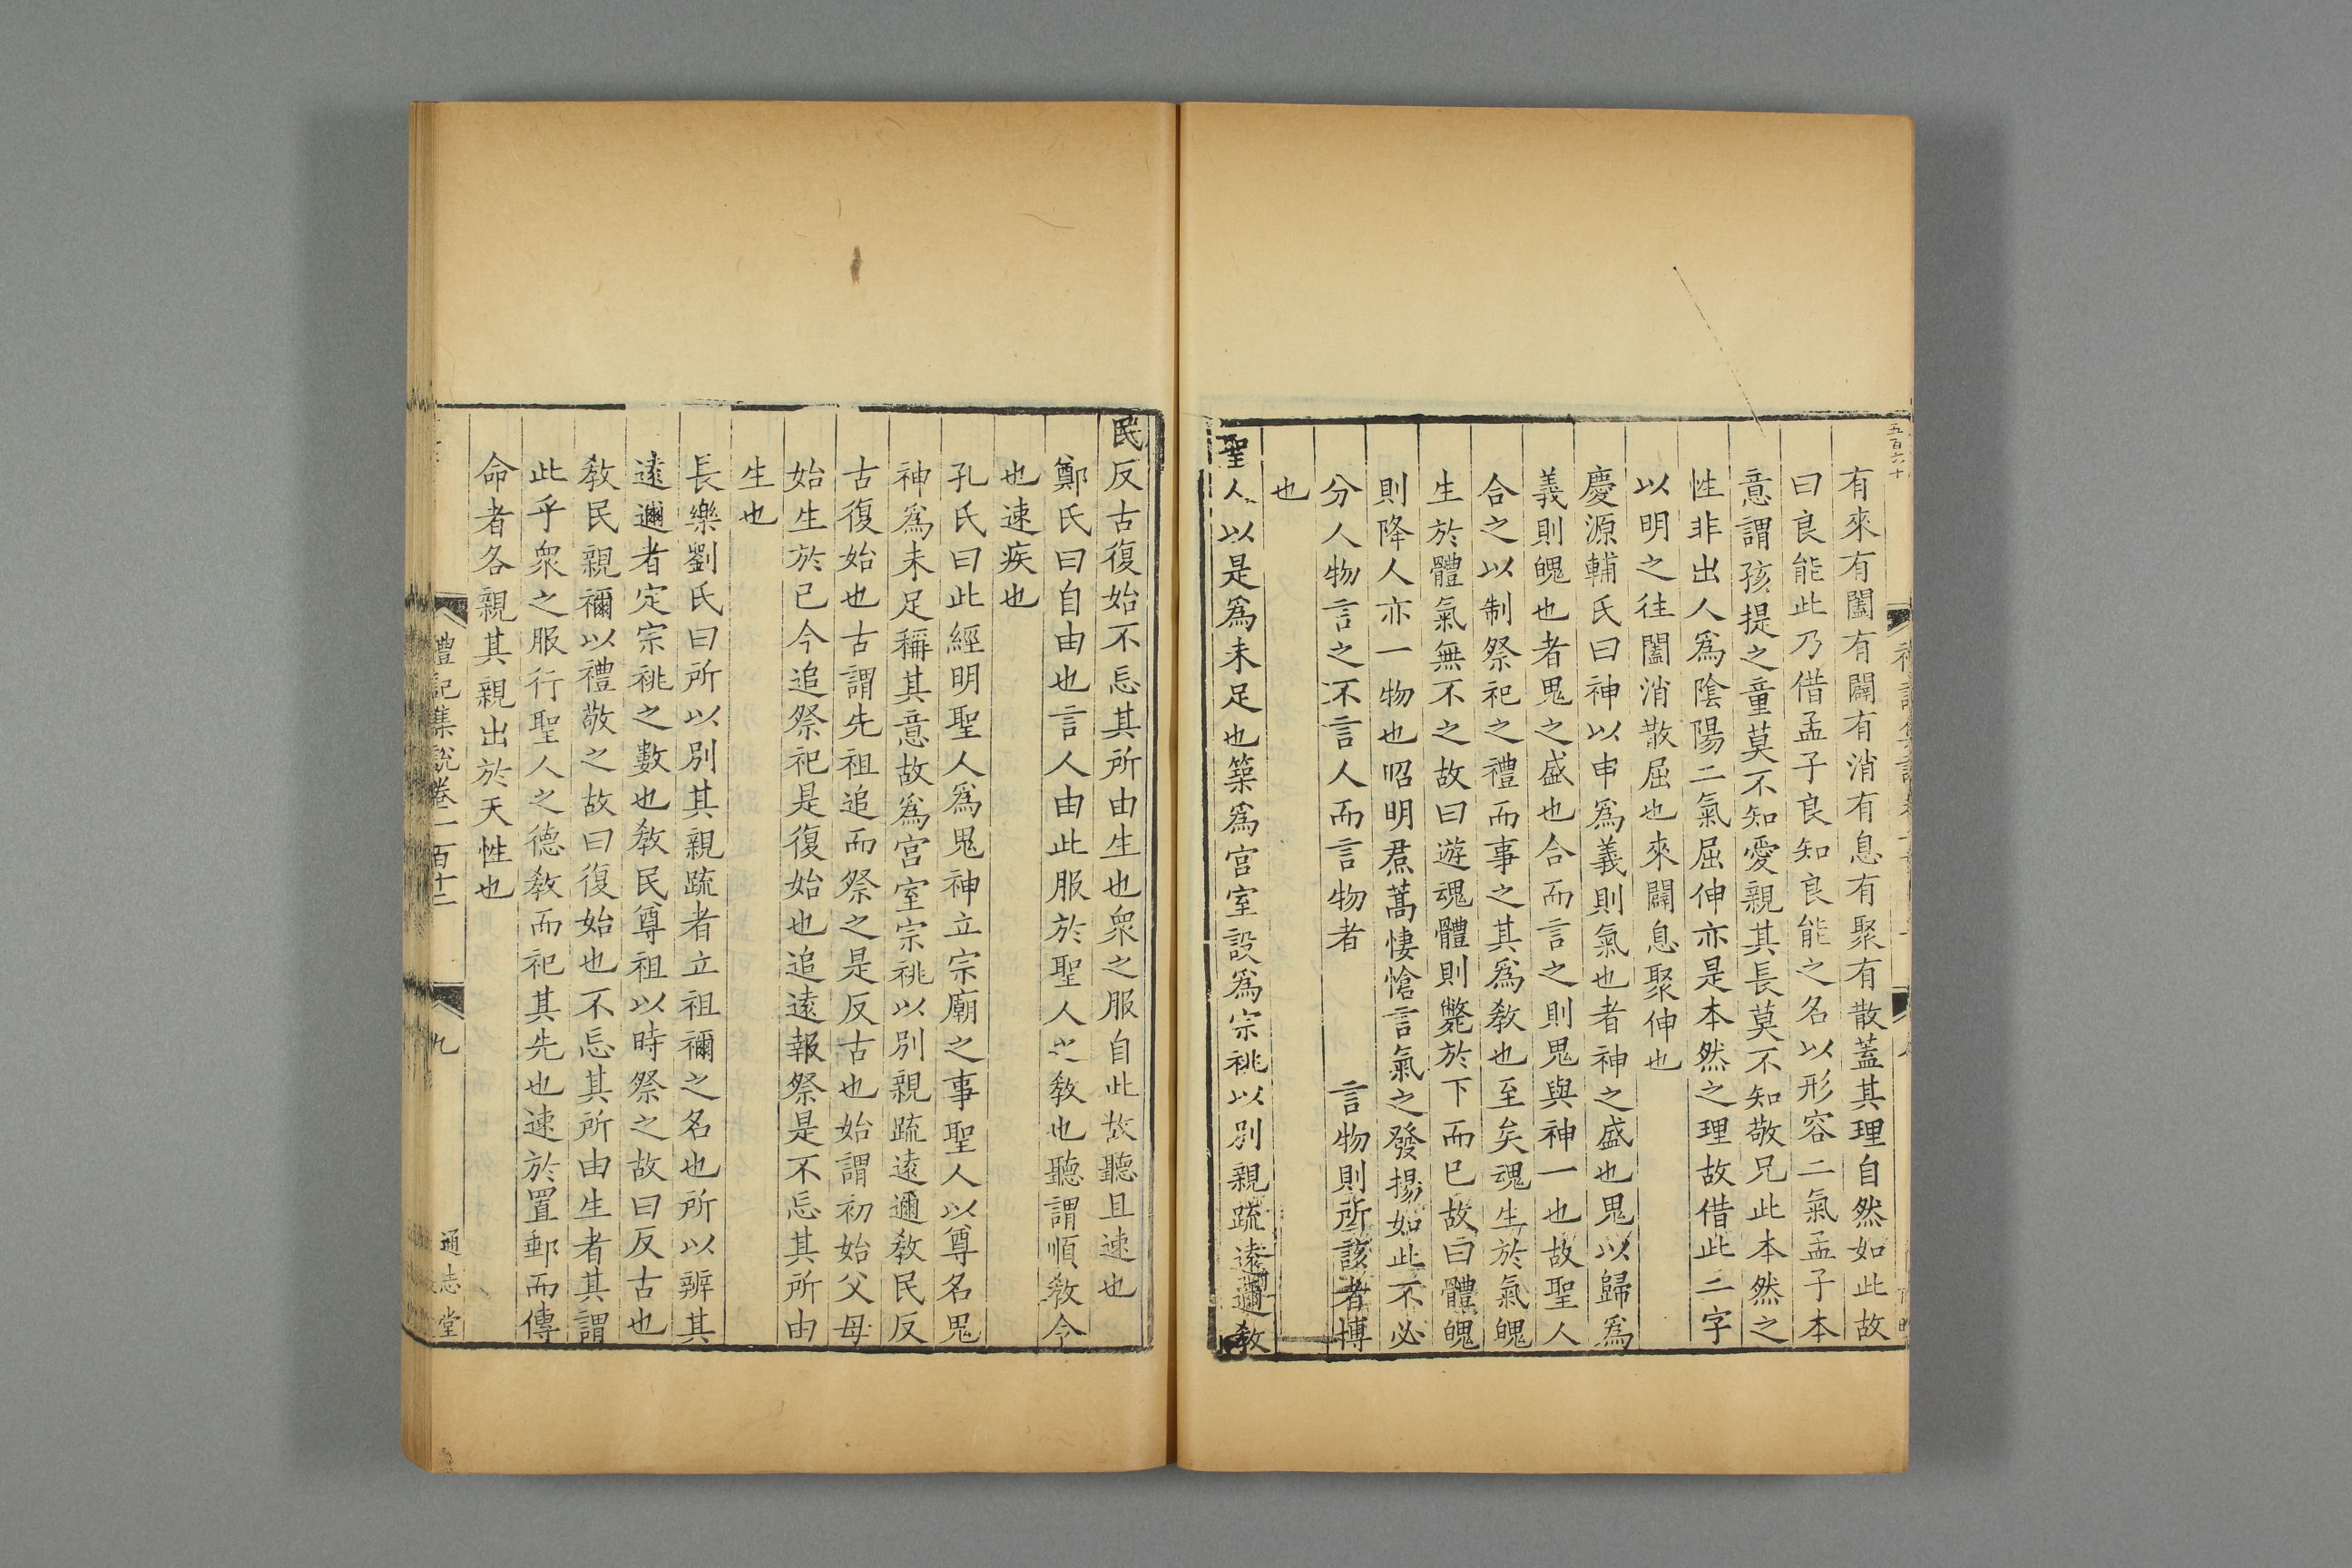 五百六十
有來有闔有闢有消有息有聚有散蓋其理自然如此故
曰良能此乃借孟子良知良能之名以形容二氣孟子本
意謂孩提之童莫不知愛親其長莫不知敬兄此本然之
性非出人爲陰陽二氣屈伸亦是本然之理故借此二字
以明之往闔消散屈也來闢息聚伸也
慶源輔氏曰神以申爲義則氣也者神之盛也鬼以歸爲
義則魄也者鬼之盛也合而言之則鬼與神一也故聖人
合之以制祭祀之禮而事之其爲敎也至矣魂生於氣魄
生於體氣無不之故曰遊魂體則斃於下而已故曰體魄
則降人亦一物也昭明焄蒿悽愴言氣之發揚如此不必
分人物言之不言人而言物者　言物則所該者博
也
聖人以是爲未足也築爲宮室設爲宗祧以別親疏遠邇敎
民反古復始不忘其所由生也衆之服自此故聽且速也
鄭氏曰自由也言人由此服於聖人之敎也聽謂順敎令
也速疾也
孔氏曰此經明聖人爲鬼神立宗廟之事聖人以尊名鬼
神爲未足稱其意故爲宮室宗祧以別親疏遠邇敎民反
古復始也古謂先祖追而祭之是反古也始謂初始父母
始生於已今追祭祀是復始也追遠報祭是不忘其所由
生也
長樂劉氏曰所以別其親疏者立祖禰之名也所以辨其
遠邇者定宗祧之數也敎民尊祖以時祭之故曰反古也
敎民親禰以禮敬之故曰復始也不忘其所由生者其謂
此乎衆之服行聖人之德敎而祀其先也速於置郵而傳
命者各親其親出於天性也
禮記集說卷一百十二　九　通志堂